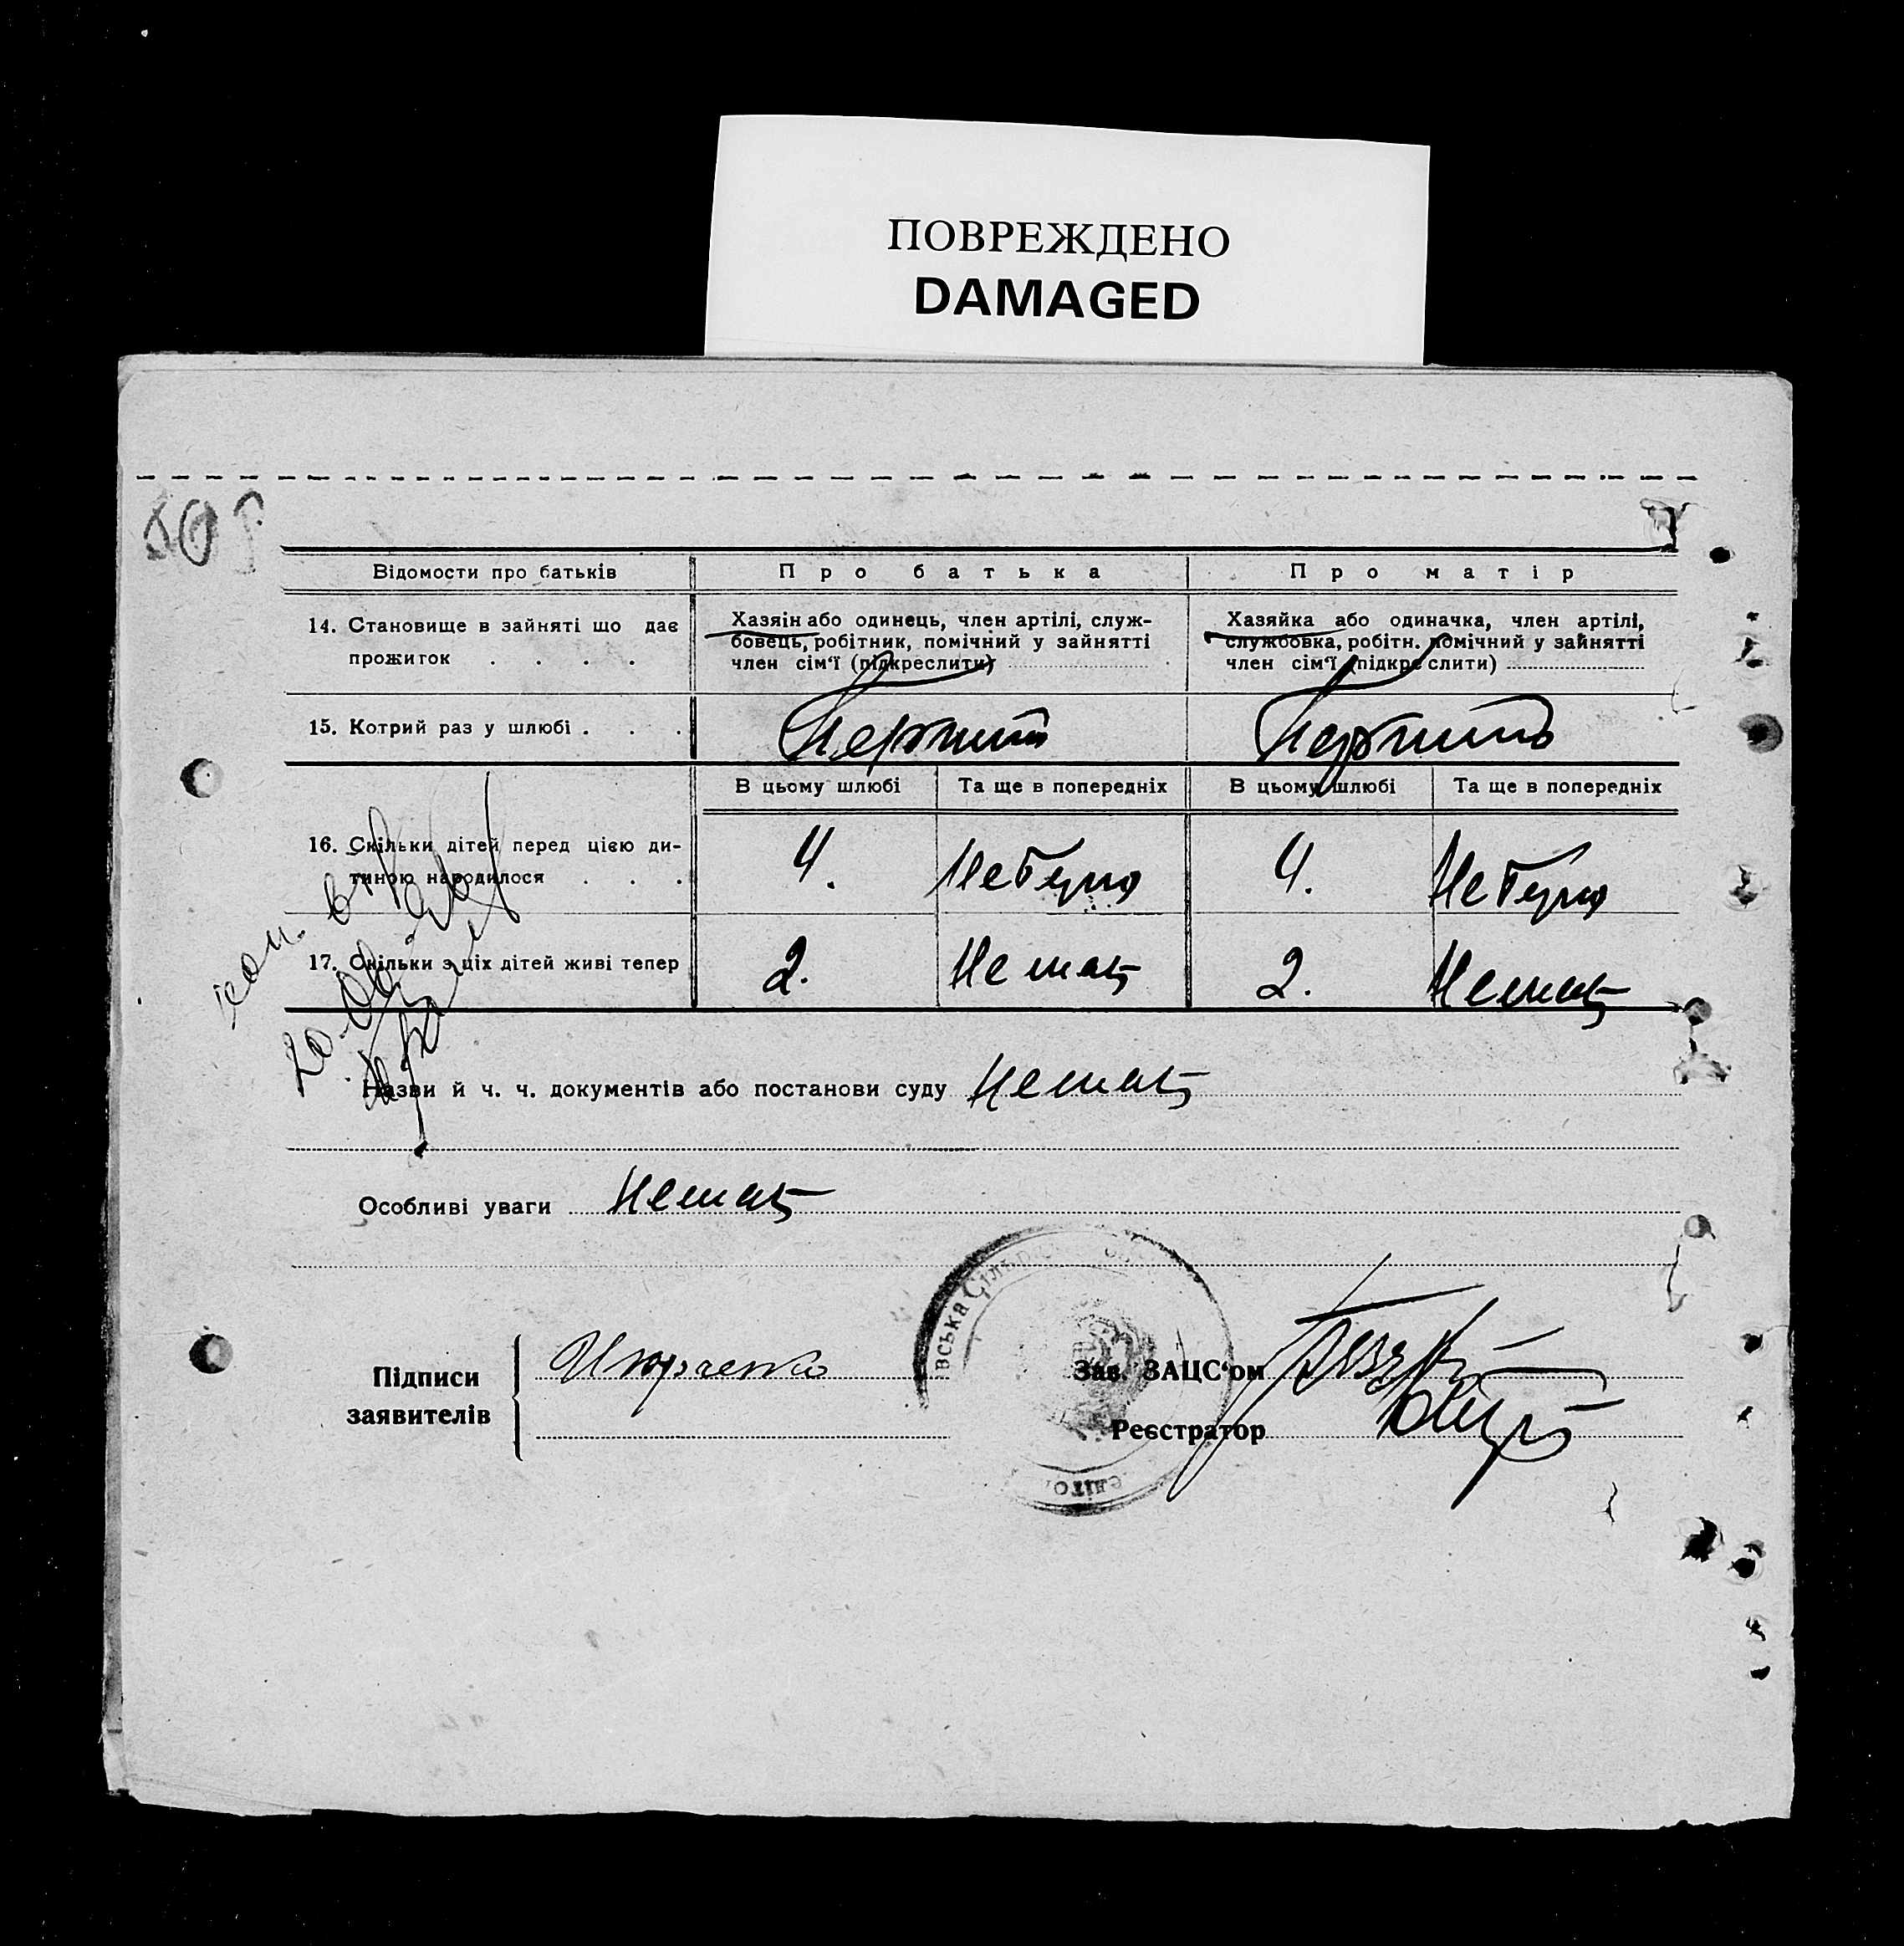 ПОВРЕЖДЕНО
DAMAGED
Відомости про батьків
Про батька
Про матір
14. Становище в зайняті що дає
прожиток . . . .
Хазяін або одинець, член артілі, служ-
бовець, робітник, помічний у зайнятті
член сім'ї (підкреслити)
Хазяйка або одиначка, член артілі,
службовка, робітн. помічний у зайнятті
член сім'ї (підкреслити)
15. Котрий раз у шлюбі . . .
В цьому шлюбі
Та ще в попередніх
В цьому шлюбі
Та ще в попередніх
16. Скільки дітей перед цією ди-
тиною народилося . . .
4.
Не було
4.
Не було
17. Скільки з ціх дітей живі тепер
2.
Немає
2.
Немає
Назви й ч. ч. документів або постанови суду Немає
Особливі уваги Немає
Підписи
заявителів
Зав. ЗАЦС'ом
Реєстратор